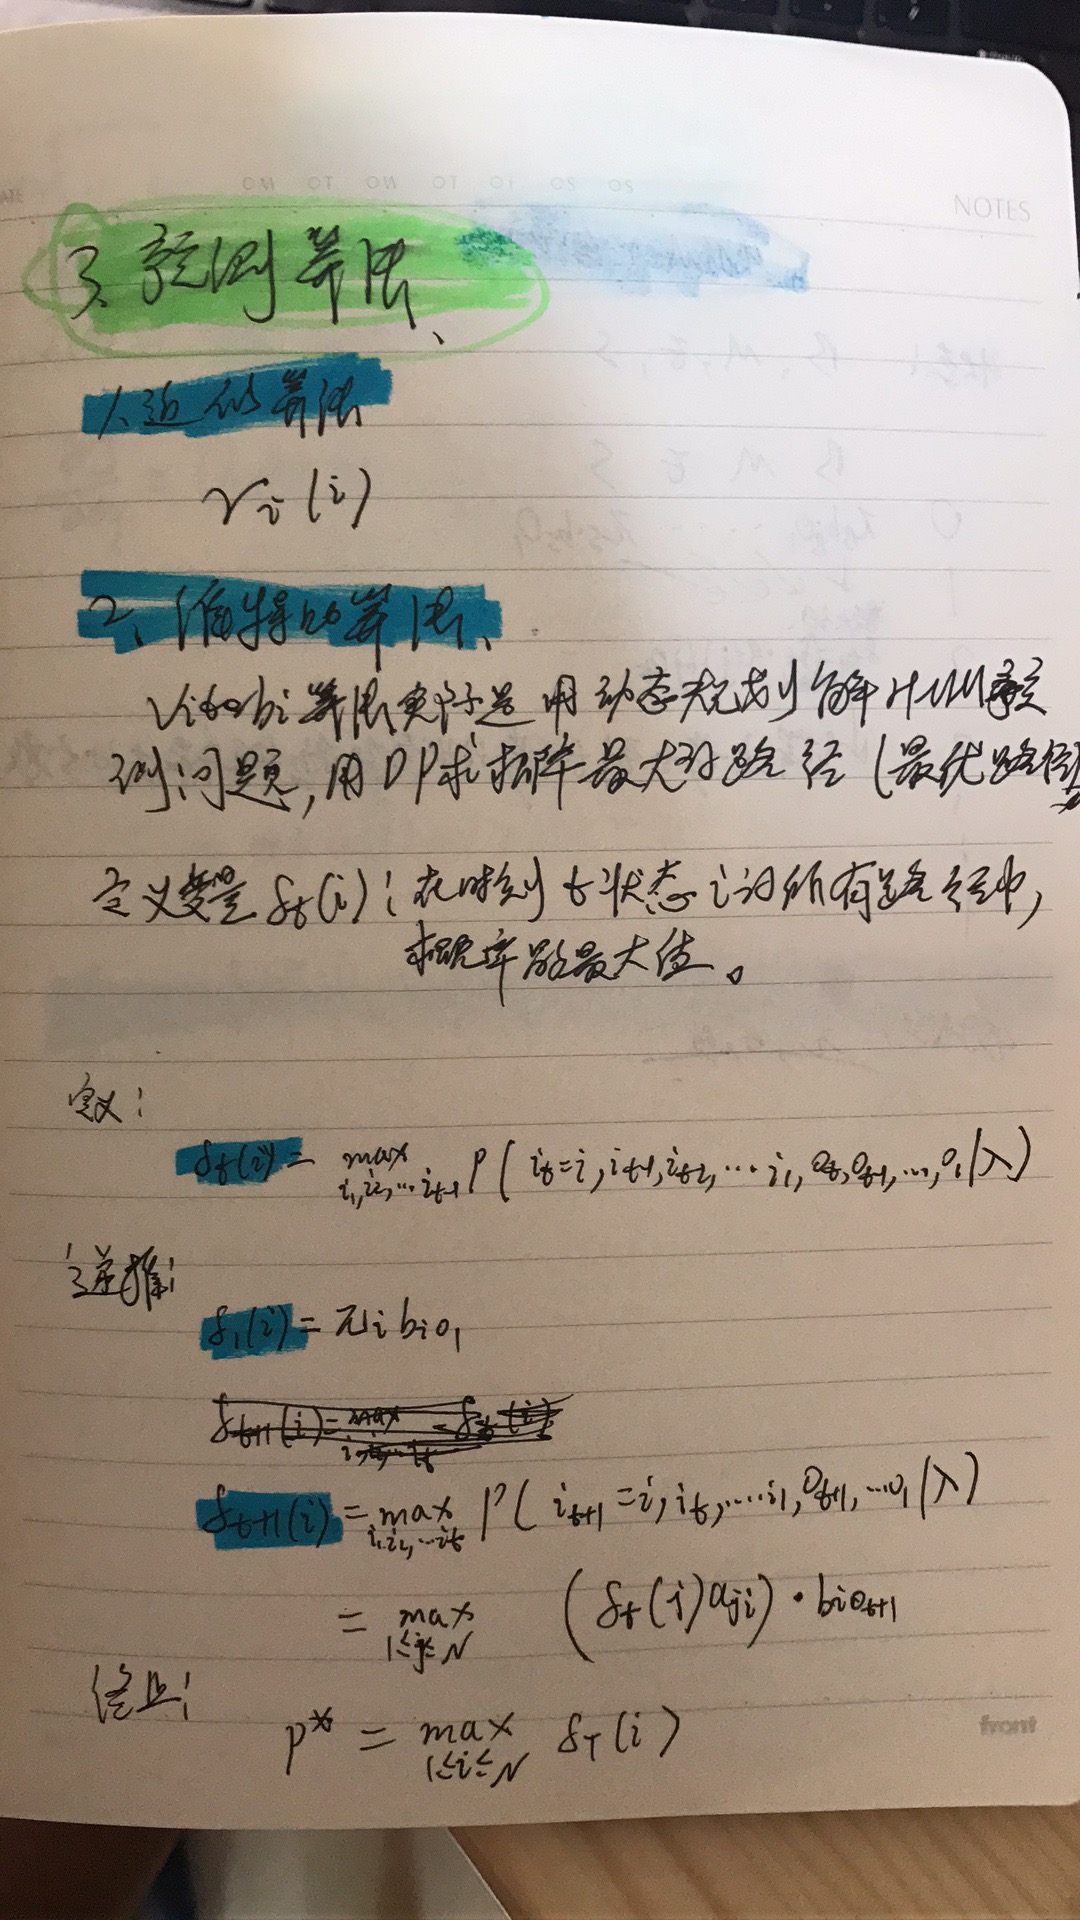 NOTES
3、预测算法、
1、近似算法
γi(i)
2、维特比算法、
Viterbi算法实际是用动态规划解HMM预
测问题，用DP求概率最大的路径(最优路径)
定义变量 δt(i)：在时刻t状态i的所有路径中，
概率的最大值。
定义：
δt(i) = max P(it=i, it-1, it-2, … i1, Ot, Ot-1, …, O1|λ)
i1,i2,…it-1
递推：
δ1(i) = πi biO1
δt+1(i) = max P(it+1=i, it, … i1, Ot+1, … O1|λ)
i1,i2,…it
= max (δt(j)aji)·biOt+1
1≤j≤N
终止：
P* = max δT(i)
1≤i≤N
front